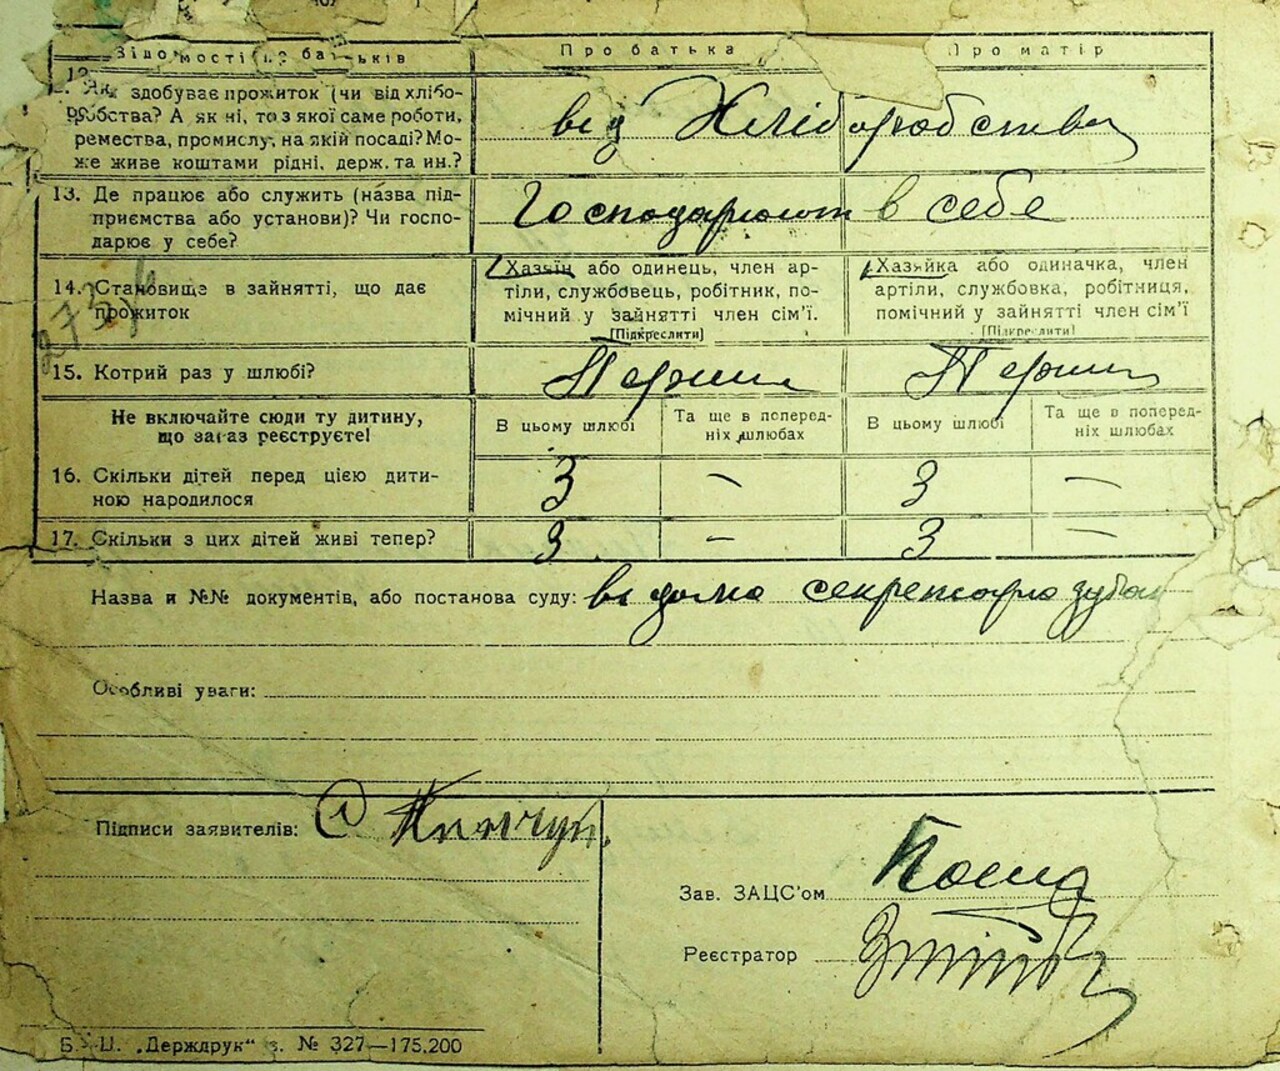 Відомості про батьків
Про батька
Про матір
12. Як здобуває прожиток (чи від хлібо-
робства? А як ні, то з якої саме роботи,
ремества, промислу, на якій посаді? Мо-
же живе коштами рідні, держ. та ин.?
від Хліборобства
13. Де працює або служить (назва під-
приємства або установи)? Чи госпо-
дарює у себе?
Господарюют в себе
14. Становище в зайнятті, що дає
прожиток
Хазяїн або одинець, член ар-
тілі, службовець, робітник, по-
мічний у зайнятті член сім'ї.
[Підкреслити]
Хазяйка або одиначка, член
артілі, службовка, робітниця,
помічний у зайнятті член сім'ї
[Підкреслити]
273
15. Котрий раз у шлюбі?
Перший
Перший
Не включайте сюди ту дитину,
що зараз реєструєте!
В цьому шлюбі
Та ще в поперед-
ніх шлюбах
В цьому шлюбі
Та ще в поперед-
ніх шлюбах
16. Скільки дітей перед цією дити-
ною народилося
3 — 3 —
17. Скільки з цих дітей живі тепер?
3 — 3 —
Назва и №№ документів, або постанова суду: відома секретарю
Особливі уваги:
Підписи заявителів:
Зав. ЗАЦС'ом
Реєстратор
Б.-Ц. „Держдрук“ з. № 327—175.200